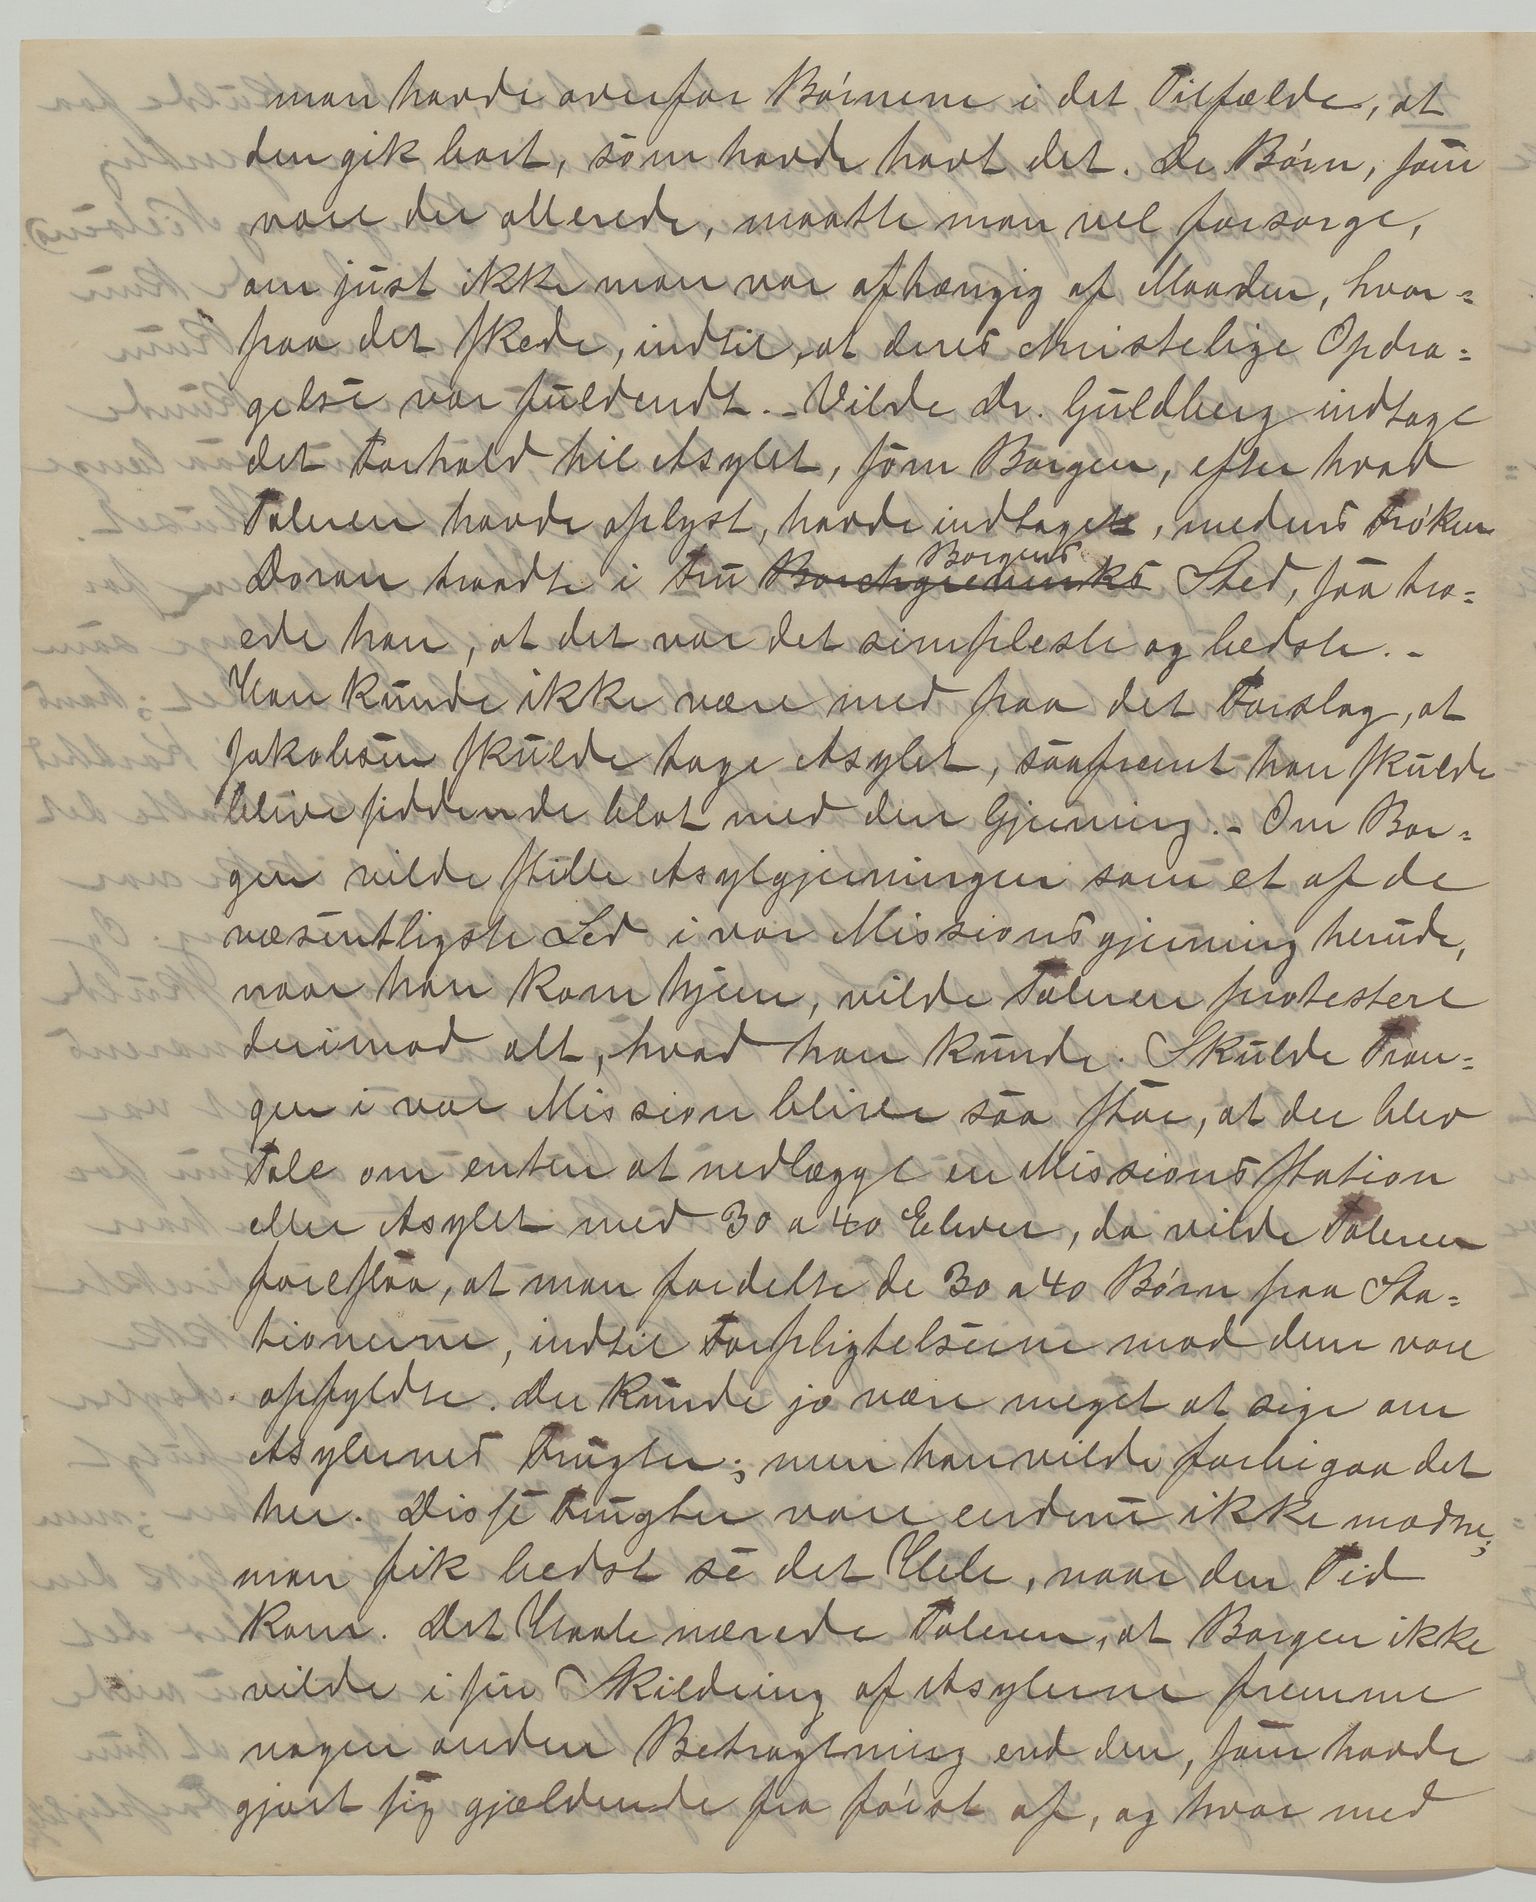 man havde overfor Børnene i det Tilfælde, at
den gik bort, som havde havt det. De Børn, som
vare der allerede, maatte man vel forsørge,
om just ikke man var afhængig af Maaden, hvor-
paa det skede, indtil, at deres christelige Opdra-
gelse var fuldendt. - Vilde Dr. Guldberg indtage
det Forhold til Asylet, som Borgen, efter hvad
Taleren havde oplyst, havde indtaget, medens Frøken
Doran traadte i Fru Borchgrevinks Borgens Sted, saa tro-
ede han, at det var det simpleste og bedste. -
Han kunde ikke være med paa det Forslag, at
Jakobsen skulde tage Asylet, saafremt han skulde
blive siddende blot med den Gjerning. - Om Bor-
gen vilde stille Asylgjerningen som et af de
væsentligste Led i vor Missionsgjerning herude,
naar han kom hjem, vilde Taleren protestere
derimod alt, hvad han kunde. Skulde Tran-
gen i vor Mission bliver saa stor, at der blev
Tale om enten at nedlægge en Missionsstation
eller Asylet med 30 a 40 Elever, da vilde Taleren
foreslaa, at man fordelte de 30 a 40 Børn paa Sta-
tionerne, indtil Forpligtelserne mod dem vare
opfyldte. Der kunde jo være meget at sige om
Asylernes Frugter; men han vilde forbigaa det
her. Disse Frugter vare endnu ikke modne;
man fik bedst se det Hele, naar den Tid
kom. Det Haab nærede Taleren, at Borgen ikke
vilde i sin Skildring af Asylerne fremme
nogen anden Betragtning end den, som havde
gjort sig gjældende fra først af, og hvor med